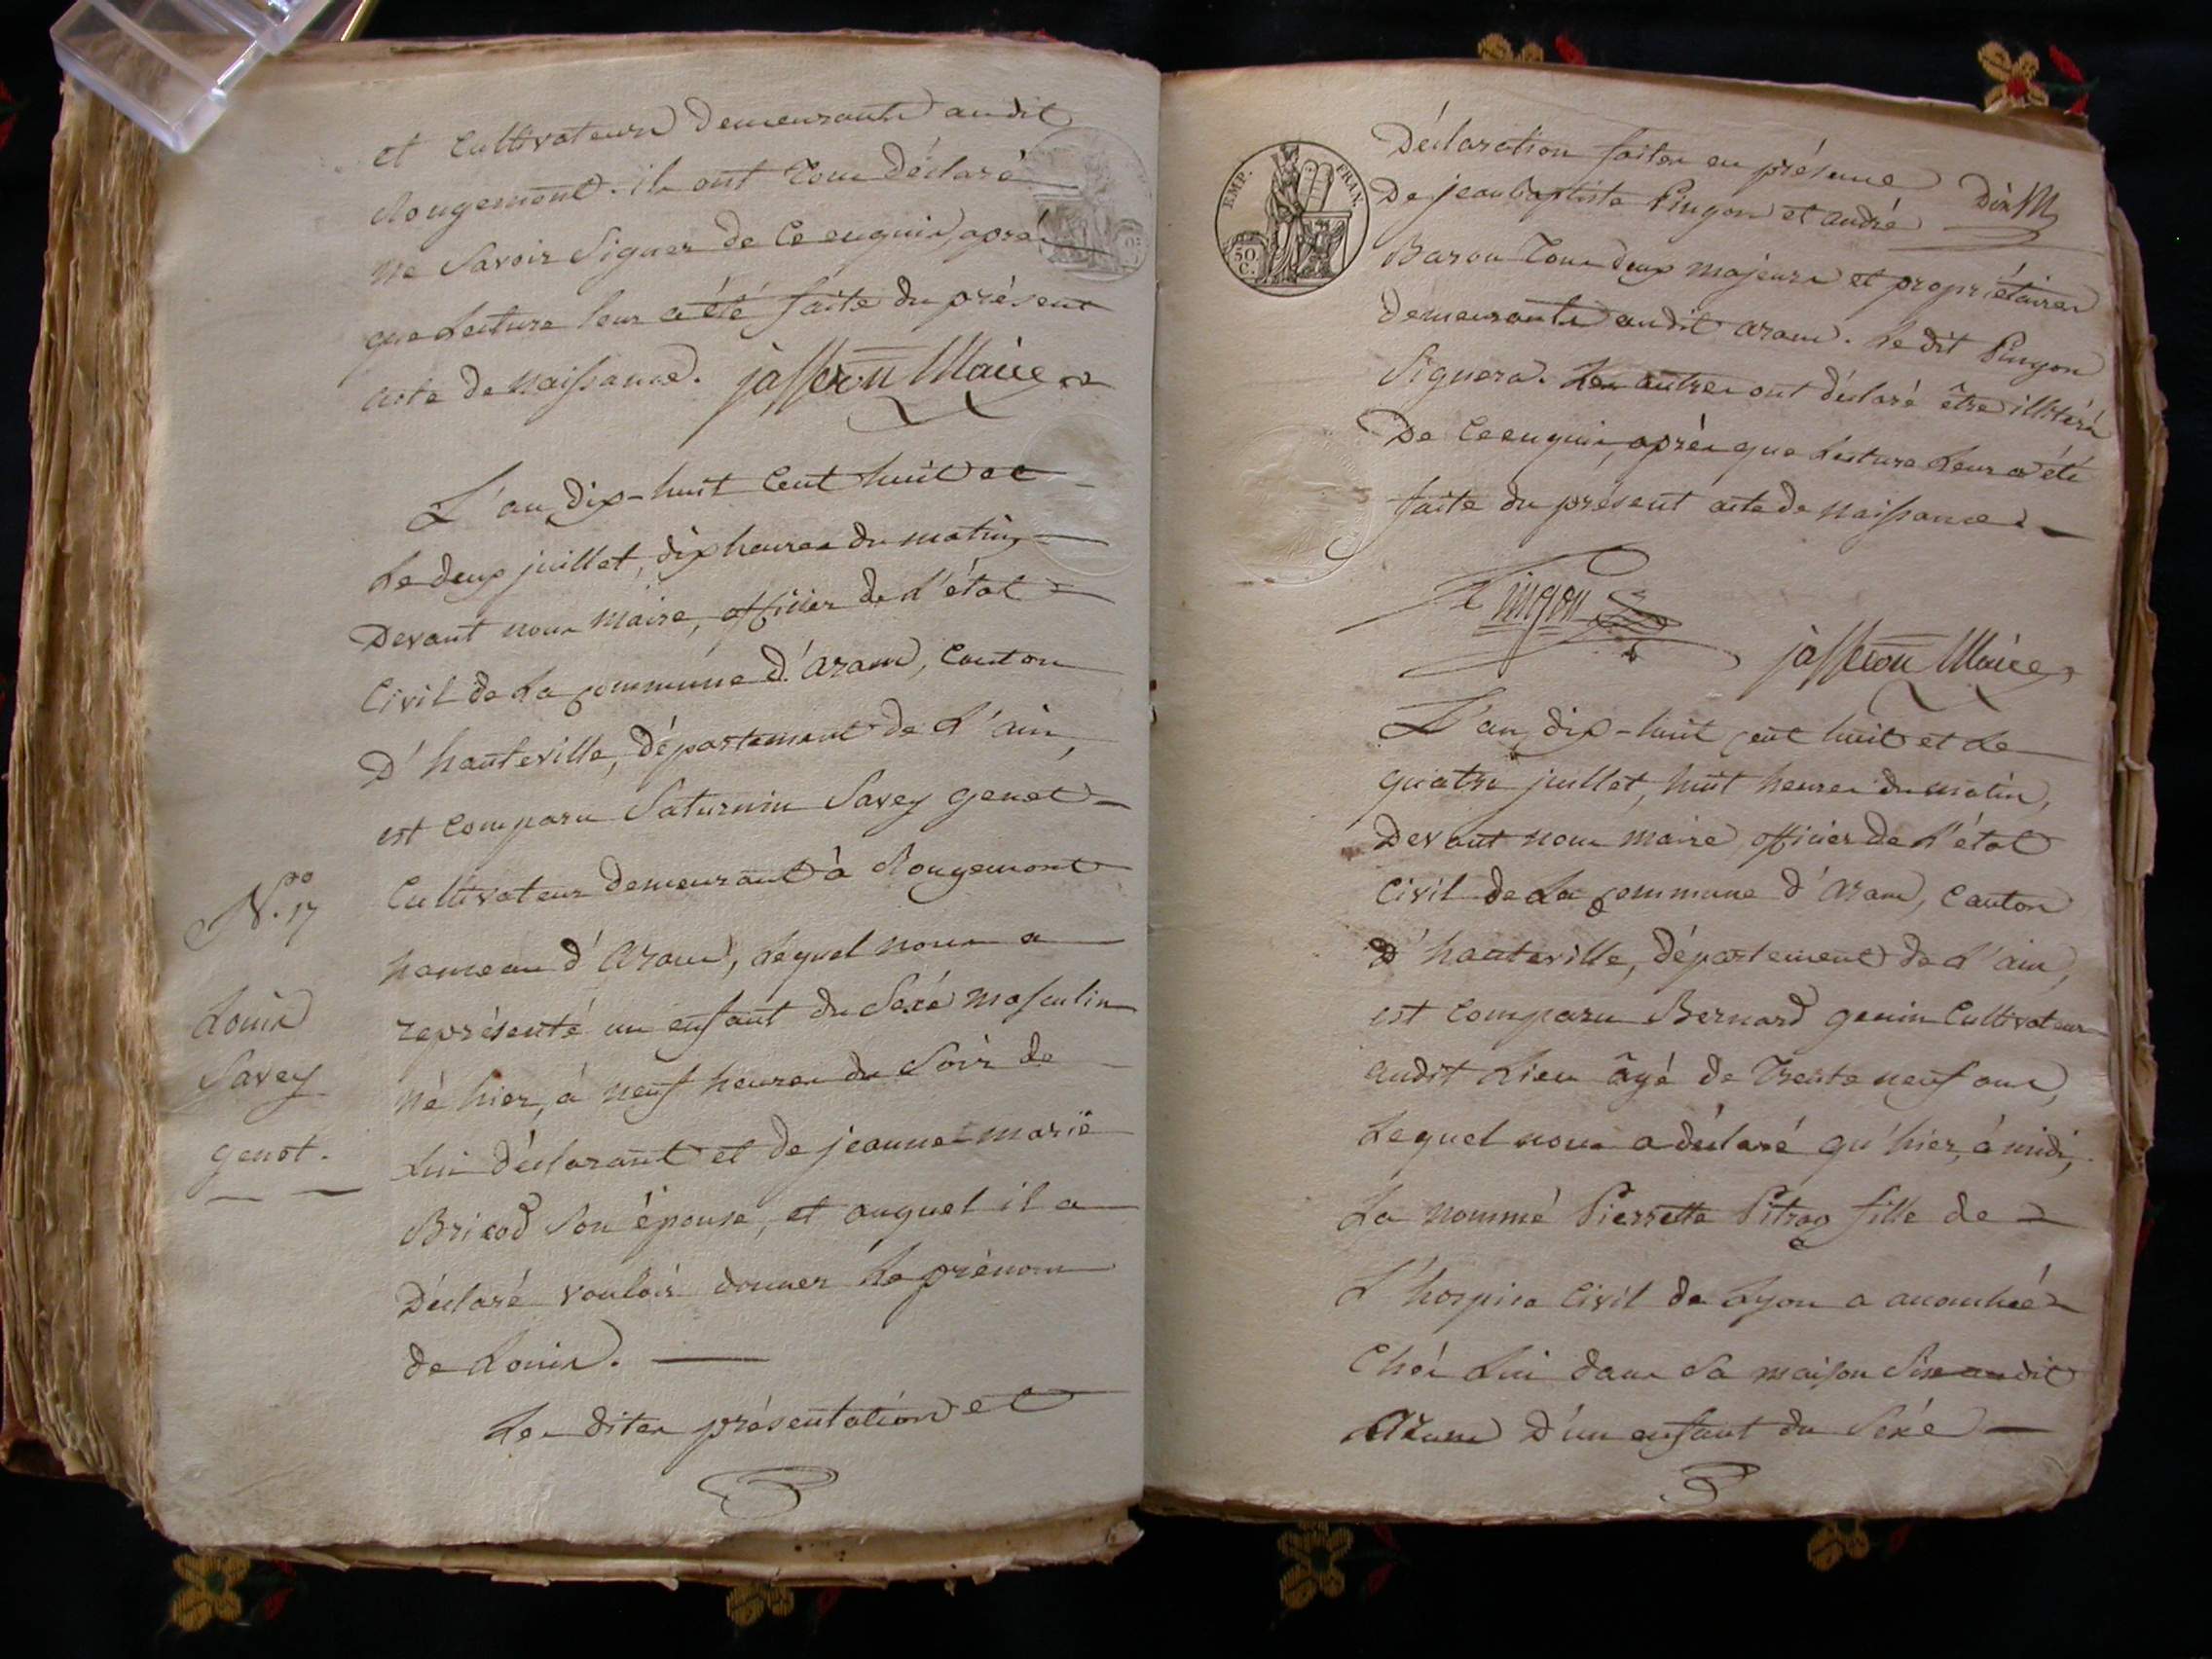 et Cultivateurs demeurants au dit
Rougemont. ils ont tous déclaré
ne Savoir Signer de Ce enquis, après
que Lecture leur a été faite du présent
acte de Naissance. jasseron Maire
L'an dix-huit Cent huit et
Le deux juillet, dix heures du matin,
Devant nous Maire, officier de L'état
Civil de La Commune d'aranc, Canton
D'hauteville, département de L'ain,
est Comparu Saturnin Savey genet
N.ro 17
Cultivateur demeurant à Rougemont
hameau d'aranc, Lequel nous a
représenté un enfant du Sexe masculin
né hier, à neuf heures du Soir de
Lui déclarant et de jeanne-marie
Bricod Son épouse, et auquel il a
Déclaré vouloir donner Le prénom
de Louis.
Louis
Savey
genet.
Les dites présentation et
EMP. FRAN.
50 C.
Déclaration faites en présence
De jean baptiste Pingon et andré
Baron tous deux majeurs et propriétaires
demeurants audit aranc. Le dit Pingon
Signera. Les autres ont déclaré être illitéré
De Ce enquis, après que Lecture Leur a été
faite du présent acte de Naissance.
Pingon
jasseron Maire
L'an dix-huit cent huit et Le
quatre juillet, huit heures du matin,
Devant nous maire, officier de L'état
Civil de La Commune d'aranc, Canton
D'hauteville, département de L'ain,
est Comparu Bernard genin Cultivateur
audit Lieu âgé de trente neuf ans,
Lequel nous a déclaré qu'hier, à midi,
La nommé Pierrette Pitrag fille de
L'hospice Civil de Lyon a accouchée
Chés Lui dans Sa maison Sise audit
Aranc D'un enfant du Sexe